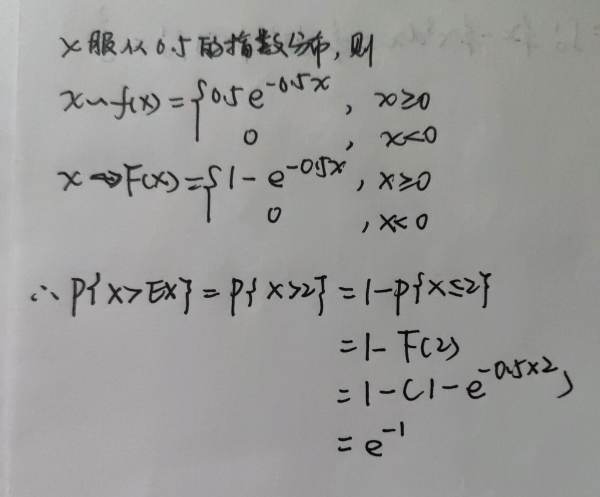 X服从0.5的指数分布,则
X~f(x)={0.5e^{-0.5x}, x≥0
0, x<0
X⇒F(x)={1-e^{-0.5x}, x≥0
0, x<0
∴P{X>EX}=P{X>2}=1-P{X≤2}
=1-F(2)
=1-(1-e^{-0.5×2})
=e^{-1}